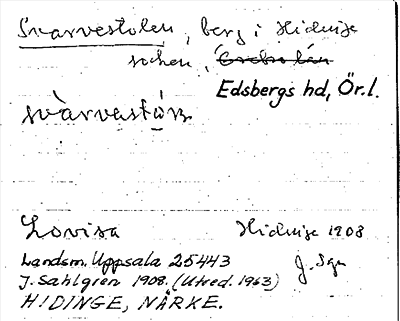 Svarvestolen, berg i Hidinge
socken, Örebro län
Edsbergs hd, Ör.l.
svàrvestón
Lovisa Hidinge 1908
Landsm. Uppsala 25443 J. Sgn
J. Sahlgren 1908. (Utred. 1963)
HIDINGE, NÄRKE.